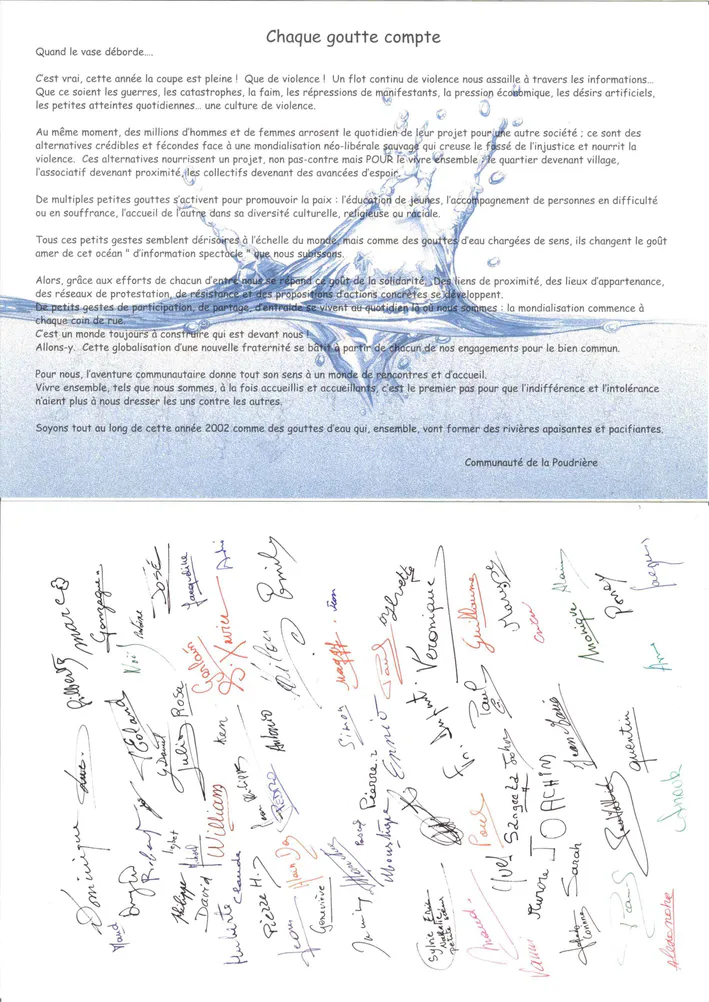 Chaque goutte compte
Quand le vase déborde....
C'est vrai, cette année la coupe est pleine ! Que de violence ! Un flot continu de violence nous assaille à travers les informations...
Que ce soient les guerres, les catastrophes, la faim, les répressions de manifestants, la pression économique, les désirs artificiels,
les petites atteintes quotidiennes... une culture de violence.
Au même moment, des millions d'hommes et de femmes arrosent le quotidien de leur projet pour une autre société ; ce sont des
alternatives crédibles et fécondes face à une mondialisation néo-libérale sauvage qui creuse le fossé de l'injustice et nourrit la
violence. Ces alternatives nourrissent un projet, non pas-contre mais POUR le vivre ensemble : le quartier devenant village,
l'associatif devenant proximité, les collectifs devenant des avancées d'espoir.
De multiples petites gouttes s'activent pour promouvoir la paix : l'éducation de jeunes, l'accompagnement de personnes en difficulté
ou en souffrance, l'accueil de l'autre dans sa diversité culturelle, religieuse ou raciale.
Tous ces petits gestes semblent dérisoires à l'échelle du monde, mais comme des gouttes d'eau chargées de sens, ils changent le goût
amer de cet océan " d'information spectacle " que nous subissons.
Alors, grâce aux efforts de chacun d'entre nous se répand ce goût de la solidarité. Des liens de proximité, des lieux d'appartenance,
des réseaux de protestation, de résistance et des propositions d'actions concrètes se développent.
De petits gestes de participation, de partage, d'entraide se vivent au quotidien là où nous sommes : la mondialisation commence à
chaque coin de rue.
C'est un monde toujours à construire qui est devant nous !
Allons-y. Cette globalisation d'une nouvelle fraternité se bâtit à partir de chacun de nos engagements pour le bien commun.
Pour nous, l'aventure communautaire donne tout son sens à un monde de rencontres et d'accueil.
Vivre ensemble, tels que nous sommes, à la fois accueillis et accueillants, c'est le premier pas pour que l'indifférence et l'intolérance
n'aient plus à nous dresser les uns contre les autres.
Soyons tout au long de cette année 2002 comme des gouttes d'eau qui, ensemble, vont former des rivières apaisantes et pacifiantes.
Communauté de la Poudrière
Dominique
Luc
Gilberte
Marc
Gonzague
Maud
Roland
Noël
JOSÉ
Philippe
David
Julia
Rosa
Jacqueline
William
Ken
Xavier
Claude
Pierre H.
Antonio
Emily
Jean
Alain
Geneviève
Simon
Maggy
Jean
Pierre
Ennio
Paul
Yvette
Veronique
Sylvie
Eric
Paul
Guillaume
Maryse
Sangeeta
John
Aurore
JOACHIM
Monique
Alain
Sarah
Jean Marie
Quentin
Jacques
Anouk